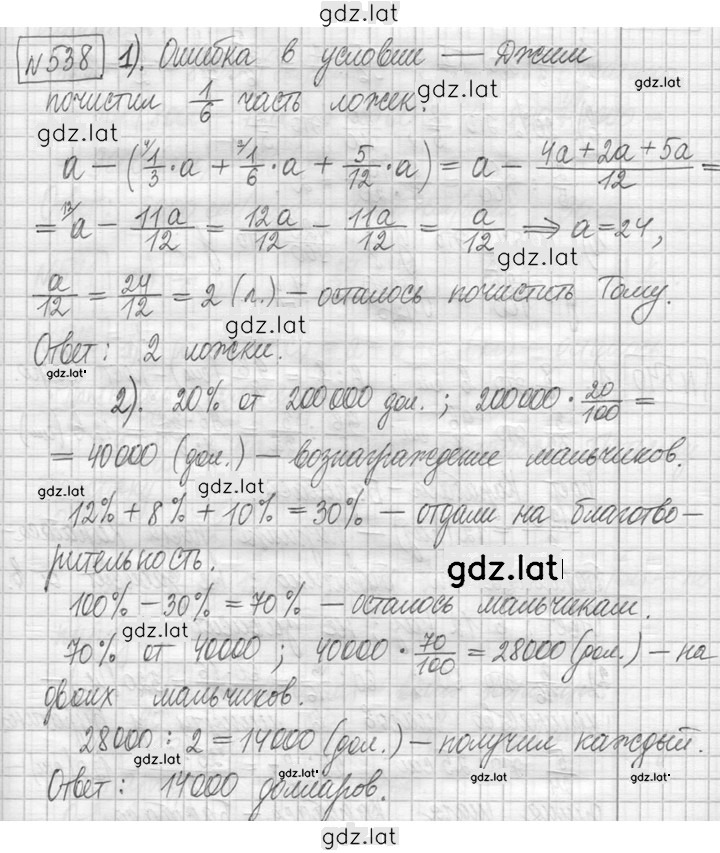 gdz.lat
№538 1). Ошибка в условии — Джим
gdz.lat
почистил 1/6 часть ложек.
gdz.lat
a − (4/1/3 · a + 2/1/6 · a + 5/12 · a) = a − (4a + 2a + 5a)/12 =
= 12/a − 11a/12 = 12a/12 − 11a/12 = a/12 ⟹ a = 24,
gdz.lat
a/12 = 24/12 = 2 (л.) — осталось почистить Тому.
gdz.lat
Ответ: 2 ложки.
gdz.lat
2). 20% от 200000 дол. ; 200000 · 20/100 =
= 40000 (дол.) — вознаграждение мальчиков.
gdz.lat gdz.lat
12% + 8% + 10% = 30% — отдали на благотво-
рительность.
gdz.lat
100% − 30% = 70% — осталось мальчикам.
gdz.lat
70% от 40000 ; 40000 · 70/100 = 28000 (дол.) — на
двоих мальчиков.
28000 : 2 = 14000 (дол.) — получил каждый.
gdz.lat gdz.lat gdz.lat
Ответ: 14000 долларов.
gdz.lat